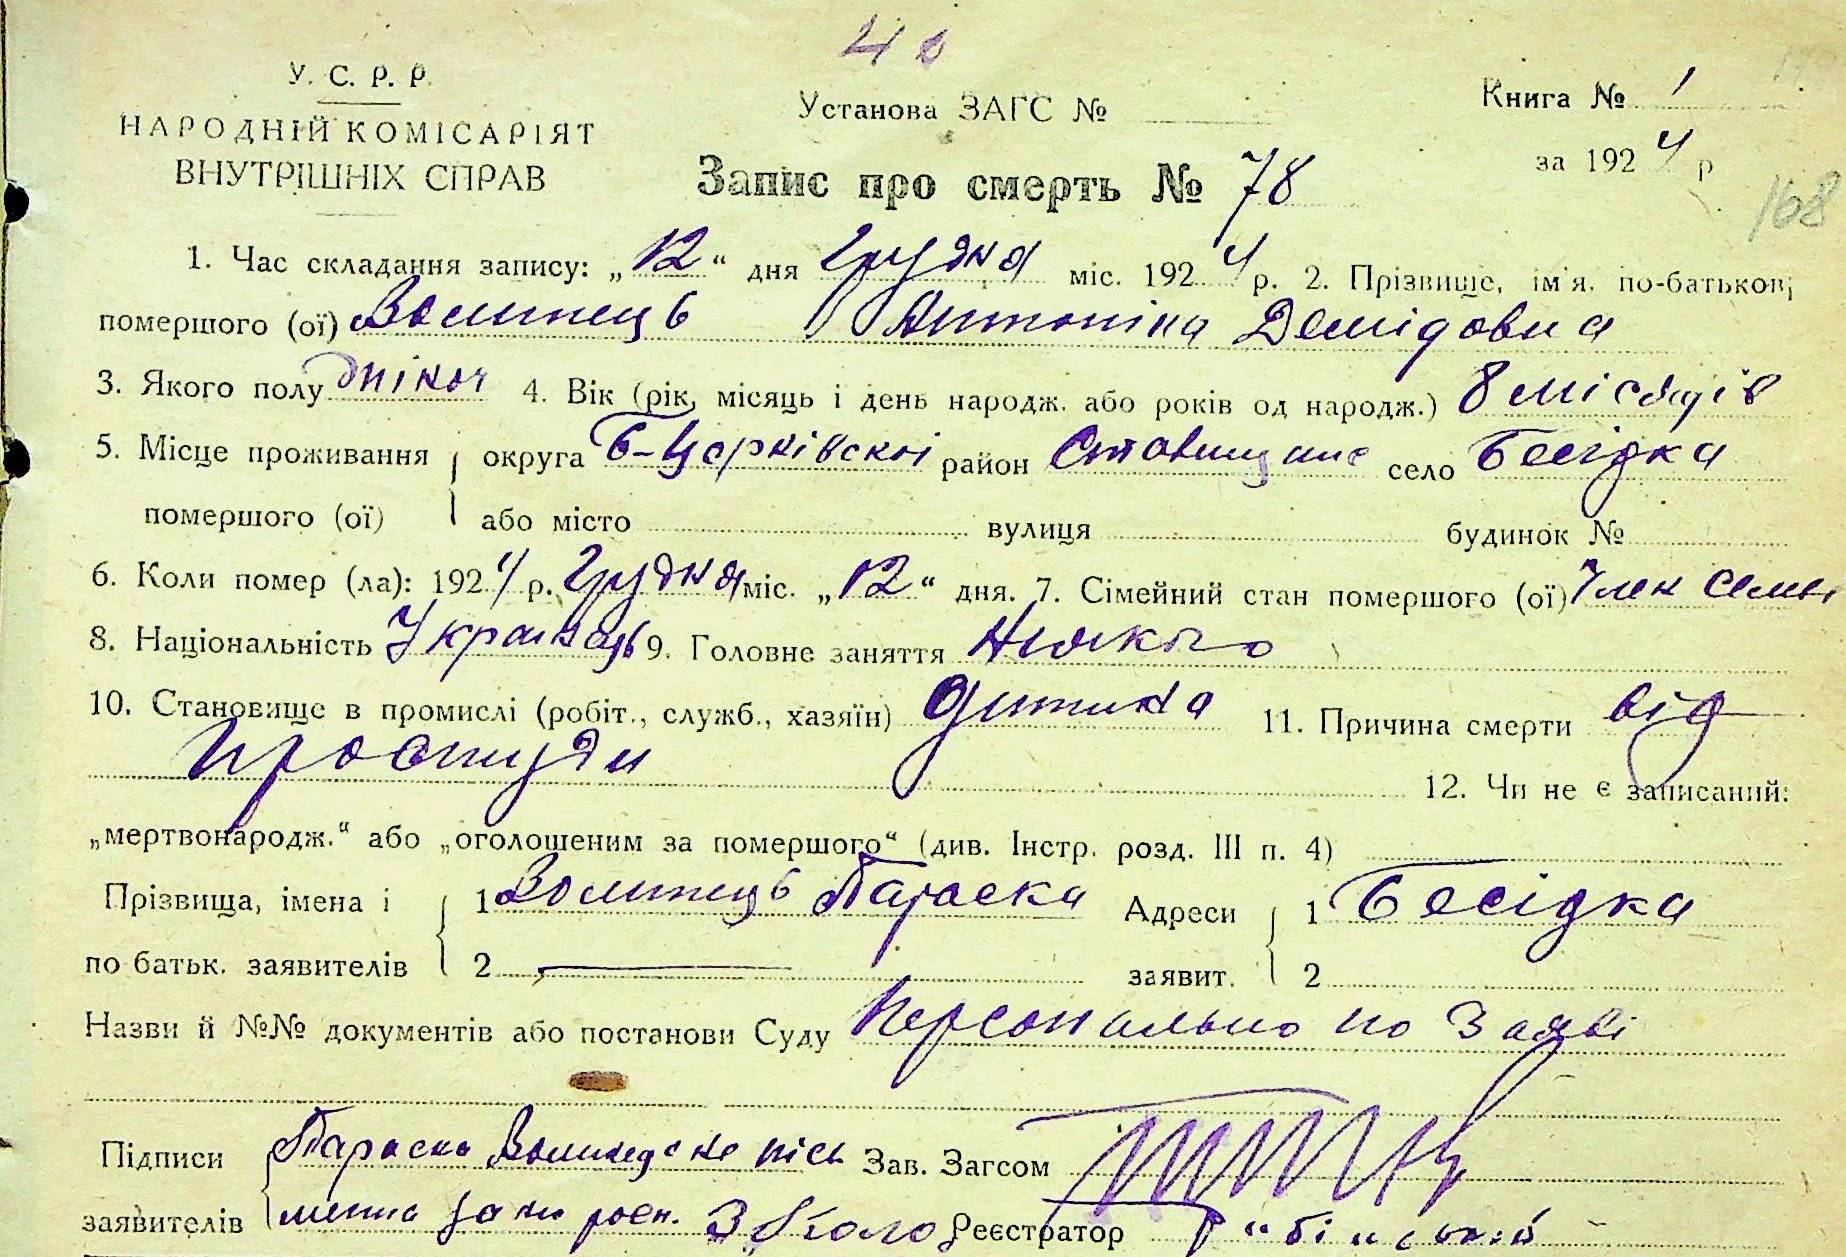 У. С. Р. Р.
НАРОДНІЙ КОМІСАРІЯТ
ВНУТРІШНІХ СПРАВ
Установа ЗАГС №
Книга № 1
за 1924 р
Запис про смерть № 78
168
1. Час складання запису: „12“ дня Грудня міс. 1924 р. 2. Прізвище, ім'я, по-батькові
помершого (ої) Волинець Антоніна Демідовна
3. Якого полу жіноч 4. Вік (рік, місяць і день народж. або років од народж.) 8 місяців
5. Місце проживання округа Б-Церківскоі район Ставищане село Бесідка
помершого (ої) або місто вулиця будинок №
6. Коли помер (ла): 1924 р. Грудня міс. „12“ дня. 7. Сімейний стан помершого (ої) Член семьи
8. Національність Українець 9. Головне заняття Ніякого
10. Становище в промислі (робіт., служб., хазяїн) дитина 11. Причина смерти від
простуди
12. Чи не є записаний:
„мертвонародж.“ або „оголошеним за помершого“ (див. Інстр. розд. III п. 4)
Прізвища, імена і 1 Волинець Параска Адреси 1 Бесідка
по батьк. заявителів 2 заявит. 2
Назви й №№ документів або постанови Суду Персонально по Заяві
Підписи Параска Волинець не пісь Зав. Загсом
заявителів менна за неі росп. Реєстратор